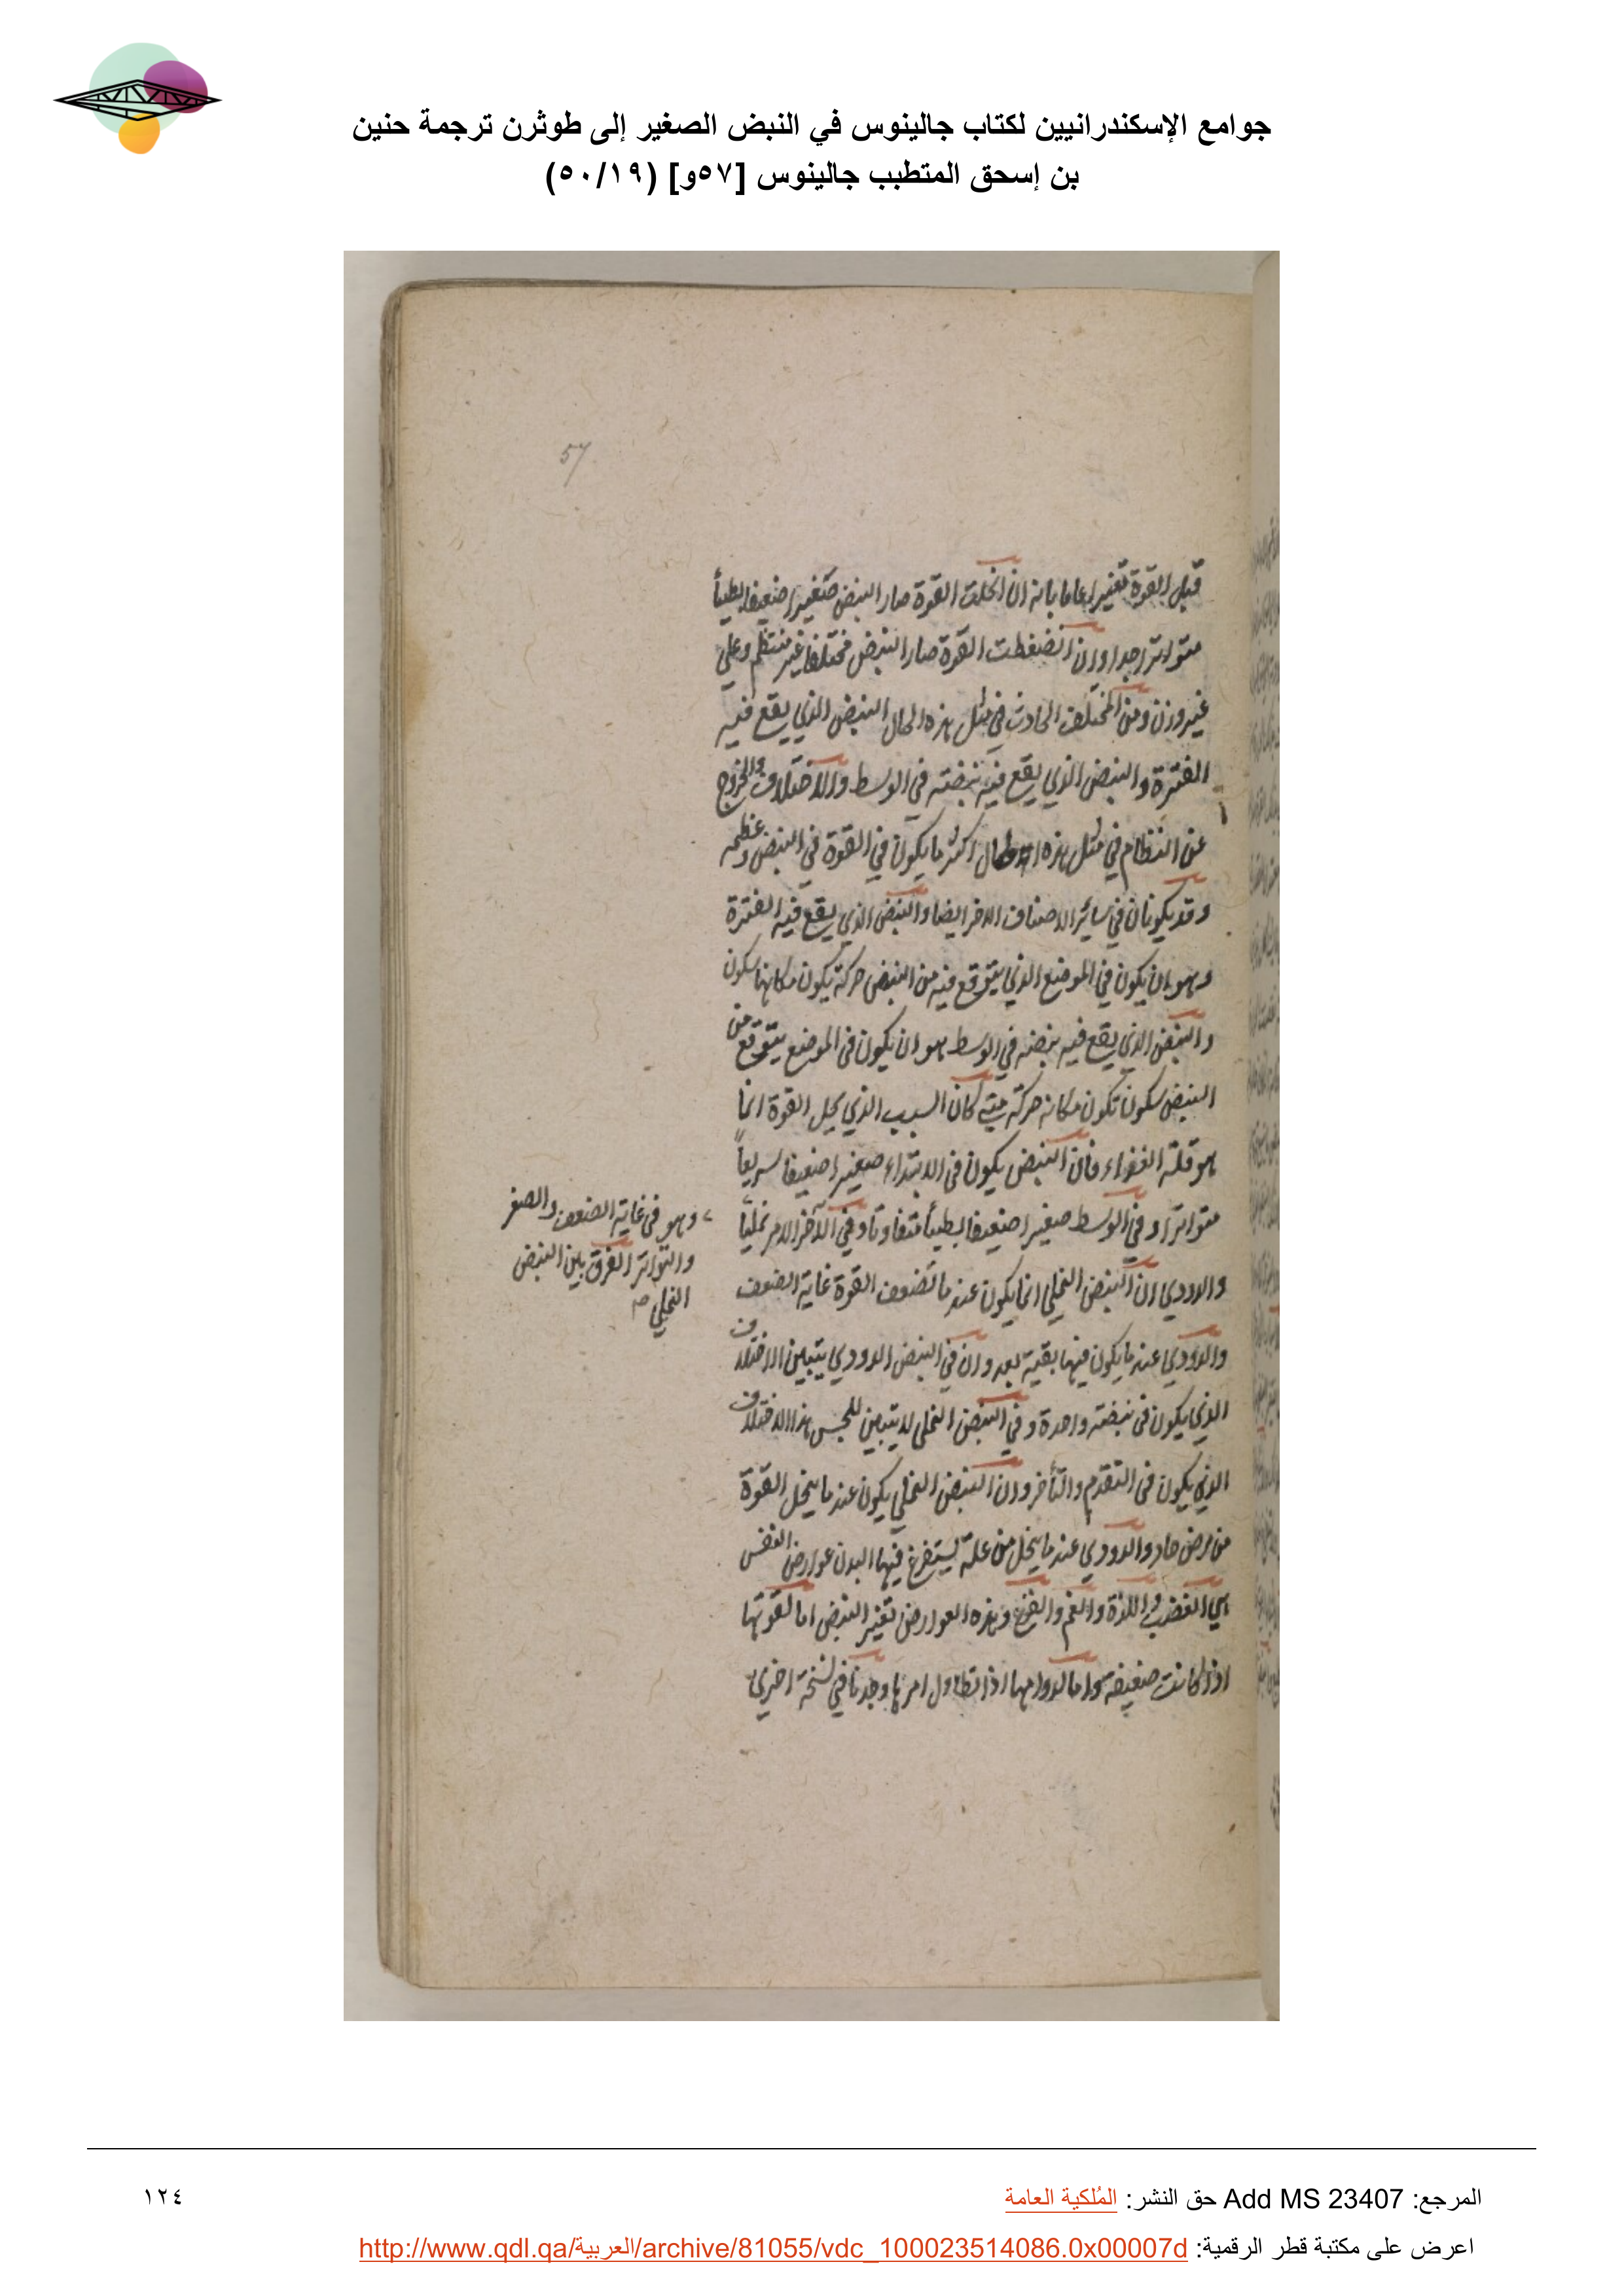 جوامع الإسكندرانيين لكتاب جالينوس في النبض الصغير إلى طوثرن ترجمة حنين
بن إسحق المتطبب جالينوس [٥٧و] (٥٠/١٩)
57
قبل القوة تغييرا عاما بانه ان انحلت القوة صار النبض صغيرا ضعيفا بطيأ
متواترا جدا وان انضغطت القوة صار النبض مختلفا غير منتظم وعلي
غير وزن ومن المختلف الحادث في مثل هذه الحال النبض الذي يقع فيه
الفترة والنبض الذي يقع فيه نبضته في الوسط والاختلاف والخروج
عن النظام في مثل هذه الحال اكثر ما يكون في القوة في النبض وعظمه
وقد يكونان في سائر الاصناف الاخر ايضا والنبض الذي يقع فيه الفترة
وهو ان يكون في الموضع الذي يتوقع فيه من النبض حركة يكون مكانها سكون
والنبض الذي يقع فيه نبضته في الوسط هو ان يكون فى الموضع يتوقع من
النبض سكون تكون مكانه حركة متي كان السبب الذي يحل القوة انما
هو قلة الغذاء فان النبض يكون فى الابتداء صغيرا ضعيفا سريعاً
متواترا وفي الوسط صغيرا ضعيفا بطيأ متفاوتا وفي الآخر الامر نملياً
وهو فى غاية الضعف والصغر
والتواتر الفرق بين النبض
النملي صح
والدودي ان النبض النملي انما يكون عند ما تضعف القوة غاية الضعف
والدودي عند ما يكون فيها بقية بعد وان في النبض الدودي يتبين الاختلاف
الذي يكون فى نبضته واحدة وفي النبض النملي لا يتبين للمجس هذا الاختلاف
الذي يكون فى التقدم والتأخر وان النبض النملي يكون عند ما ينحل القوة
من مرض حاد والدودي عند ما ينحل من علة يستفرغ فيها البدن عوارض النفس
هي الغضب واللذة والغم والفزع وهذه العوارض تغير النبض اما لقوتها
اذا كانت ضعيفة واما لدوامها اذا تطاول امرها وجدنا في نسخة اخري
المرجع: Add MS 23407 حق النشر: المُلكية العامة
١٢٤
اعرض على مكتبة قطر الرقمية: http://www.qdl.qa/العربية/archive/81055/vdc_100023514086.0x00007d